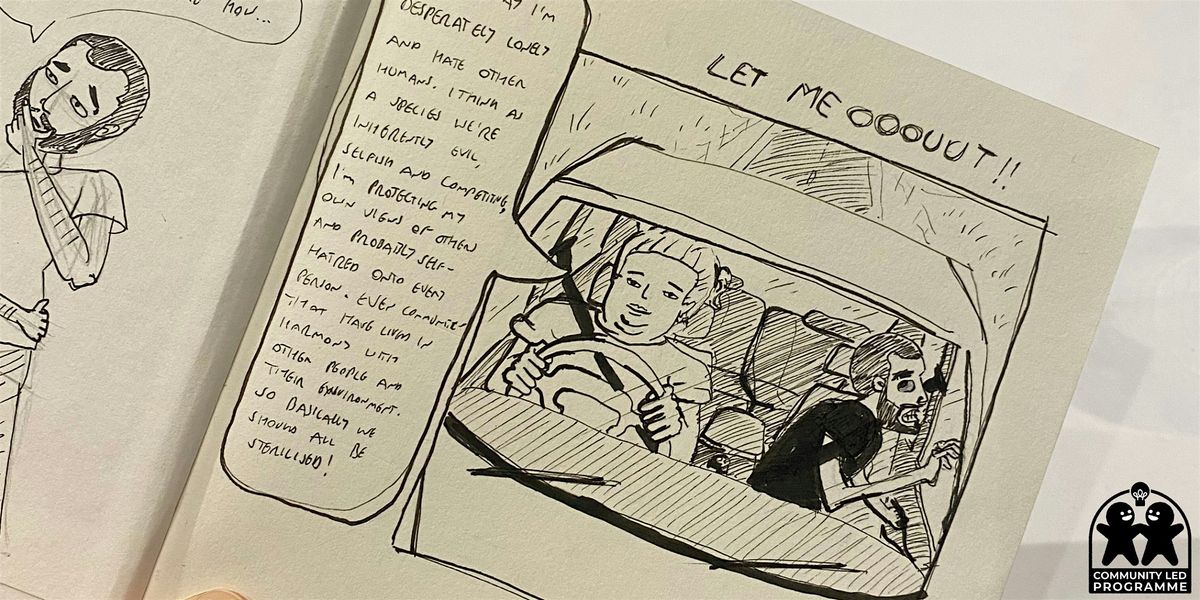 HOW...
I'M
DESPERATELY LONELY
AND HATE OTHER
HUMANS. I THINK AS
A SPECIES WE'RE
INHERENTLY EVIL,
SELFISH AND COMPETITIVE,
I'M PROJECTING MY
OWN VIEWS OF OTHERS
AND PROBABLY SELF-
HATRED ONTO EVERY
PERSON. EVEN COMMUNITIES
THAT HAVE LIVED IN
HARMONY WITH
OTHER PEOPLE AND
THEIR ENVIRONMENT.
SO BASICALLY WE
SHOULD ALL BE
STERILISED!
LET ME OOOUUUT!!
COMMUNITY LED
PROGRAMME